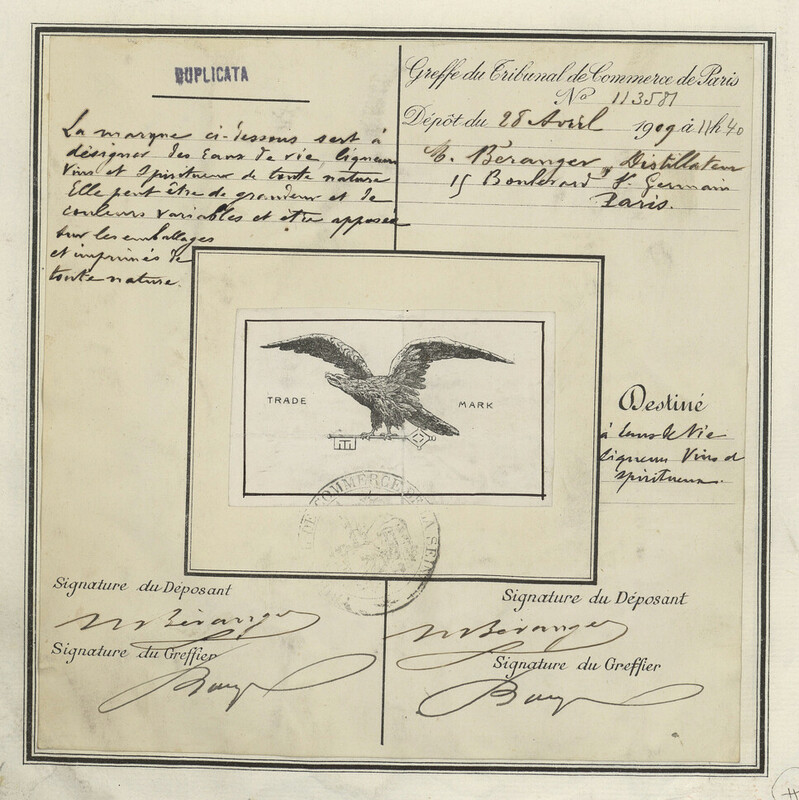 DUPLICATA
La marque ci-dessous sert à
désigner des Eaux de vie, liqueurs
Vins et Spiritueux de toute nature
Elle peut être de grandeur et de
couleurs variables et être apposée
sur les emballages
et imprimés de
toute nature.
Greffe du Tribunal de Commerce de Paris
No 113581
Dépôt du 28 Avril 1909 à 11h40
M. Béranger, Distillateur
15 Boulevard St. Germain
Paris.
TRADE MARK
Destiné
à Eaux de Vie
Liqueurs Vins et
Spiritueux.
DE COMMERCE DE LA SEINE
Signature du Déposant
M Béranger
Signature du Greffier
Signature du Déposant
M Béranger
Signature du Greffier